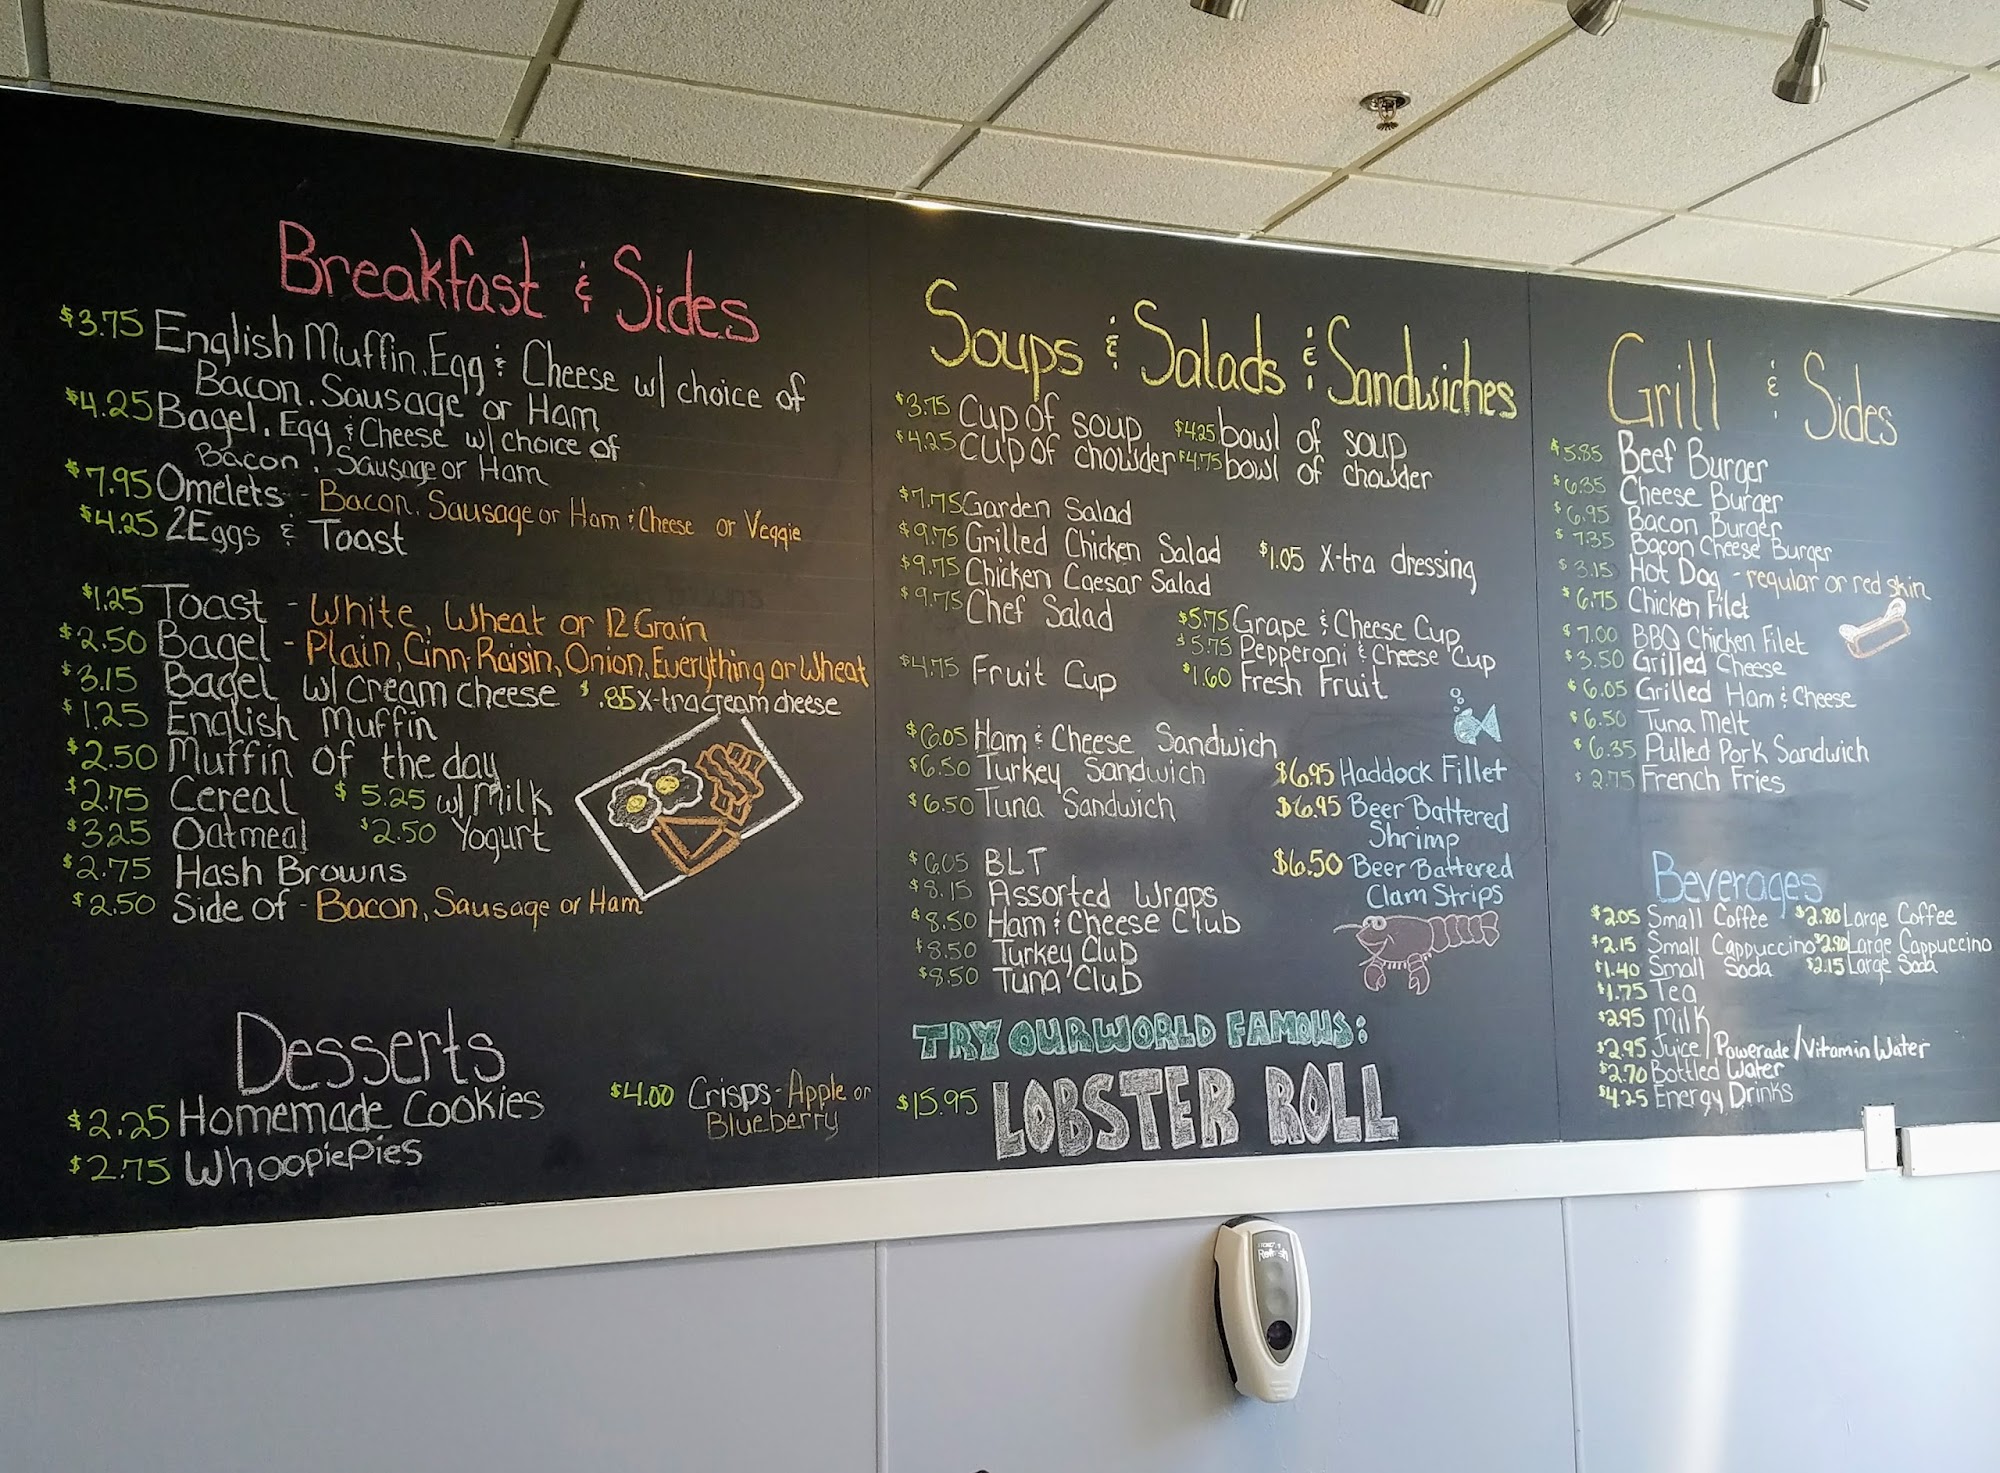 Breakfast & Sides
$3.75 English Muffin, Egg & Cheese w/ choice of
Bacon, Sausage or Ham
$4.25 Bagel, Egg & Cheese w/ choice of
Bacon, Sausage or Ham
$7.95 Omelets - Bacon, Sausage or Ham & Cheese or Veggie
$4.25 2 Eggs & Toast
$1.25 Toast - White, Wheat or 12 Grain
$2.50 Bagel - Plain, Cinn. Raisin, Onion, Everything or Wheat
$3.15 Bagel w/ cream cheese $.85 x-tra cream cheese
$1.25 English Muffin
$2.50 Muffin of the day
$2.75 Cereal $5.25 w/ Milk
$3.25 Oatmeal $2.50 Yogurt
$2.75 Hash Browns
$2.50 Side of - Bacon, Sausage or Ham
Desserts
$2.25 Homemade Cookies
$2.75 Whoopie Pies
$4.00 Crisps - Apple or
Blueberry
Soups & Salads & Sandwiches
$3.75 Cup of soup $4.25 bowl of soup
$4.25 cup of chowder $4.75 bowl of chowder
$7.75 Garden Salad
$9.75 Grilled Chicken Salad $1.05 X-tra dressing
$9.75 Chicken Caesar Salad
$9.75 Chef Salad
$5.75 Grape & Cheese Cup
$5.75 Pepperoni & Cheese Cup
$4.75 Fruit Cup $1.60 Fresh Fruit
$6.05 Ham & Cheese Sandwich
$6.50 Turkey Sandwich
$6.50 Tuna Sandwich
$6.95 Haddock Fillet
$6.95 Beer Battered
Shrimp
$6.50 Beer Battered
Clam Strips
$6.05 BLT
$8.15 Assorted Wraps
$8.50 Ham & Cheese Club
$8.50 Turkey Club
$8.50 Tuna Club
TRY OUR WORLD FAMOUS:
$15.95 LOBSTER ROLL
Grill & Sides
$5.85 Beef Burger
$6.35 Cheese Burger
$6.95 Bacon Burger
$7.35 Bacon Cheese Burger
$3.15 Hot Dog - regular or red skin
$6.75 Chicken Filet
$7.00 BBQ Chicken Filet
$3.50 Grilled Cheese
$6.05 Grilled Ham & Cheese
$6.50 Tuna Melt
$6.35 Pulled Pork Sandwich
$2.75 French Fries
Beverages
$2.05 Small Coffee $2.80 Large Coffee
$2.15 Small Cappuccino $2.90 Large Cappuccino
$1.40 Small Soda $2.15 Large Soda
$1.75 Tea
$2.95 Milk
$2.95 Juice/Powerade/Vitamin Water
$2.70 Bottled Water
$4.25 Energy Drinks